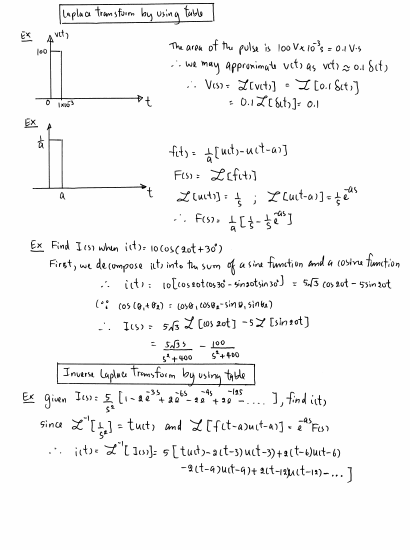 Laplace Transform by using table
Ex
v(t)
100
0
1×10⁻³
t
The area of the pulse is 100V×10⁻³s = 0.1 V·s
∴ we may approximate v(t) as v(t) ≈ 0.1 δ(t)
∴ V(s) = ℒ[v(t)] = ℒ[0.1 δ(t)]
= 0.1 ℒ[δ(t)] = 0.1
Ex
1/a
a
t
f(t) = 1/a [u(t)-u(t-a)]
F(s) = ℒ[f(t)]
ℒ[u(t)] = 1/s ; ℒ[u(t-a)] = 1/s e^-as
∴ F(s) = 1/a [1/s - 1/s e^-as]
Ex Find I(s) when i(t) = 10cos(20t+30°)
First, we decompose i(t) into the sum of a sine function and a cosine function
∴ i(t) = 10[cos20t cos30° - sin20t sin30°] = 5√3 cos20t - 5sin20t
(∵ cos(θ₁+θ₂) = cosθ₁ cosθ₂ - sinθ₁ sinθ₂)
∴ I(s) = 5√3 ℒ[cos20t] - 5ℒ[sin20t]
= 5√3 s/(s²+400) - 100/(s²+400)
Inverse Laplace Transform by using table
Ex given I(s) = 5/s² [1-2e^-3s+2e^-6s-2e^-9s+2e^-12s - ....], find i(t)
since ℒ⁻¹[1/s²] = tu(t) and ℒ[f(t-a)u(t-a)] = e^-as F(s)
∴ i(t) = ℒ⁻¹[I(s)] = 5[tu(t)-2(t-3)u(t-3)+2(t-6)u(t-6)
-2(t-9)u(t-9)+2(t-12)u(t-12) - ...]